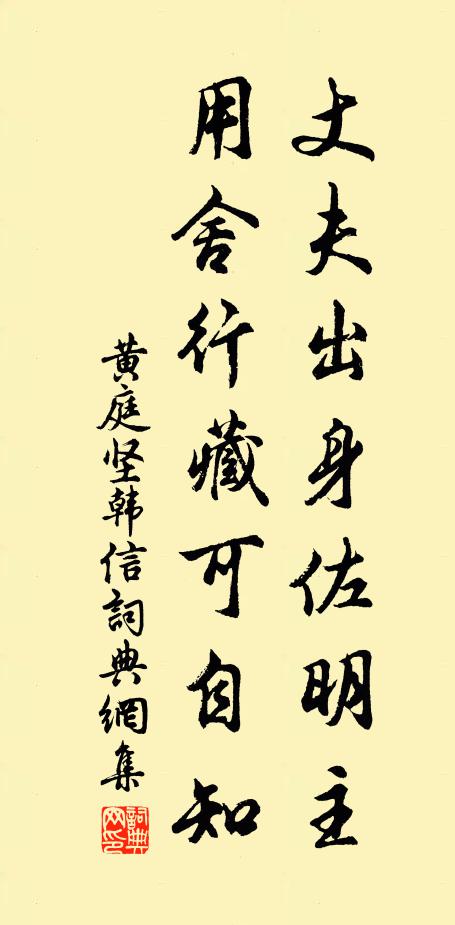 丈夫出身佐明主
用舍行藏可自知
黄庭坚韩信詞典網集
詞典网印